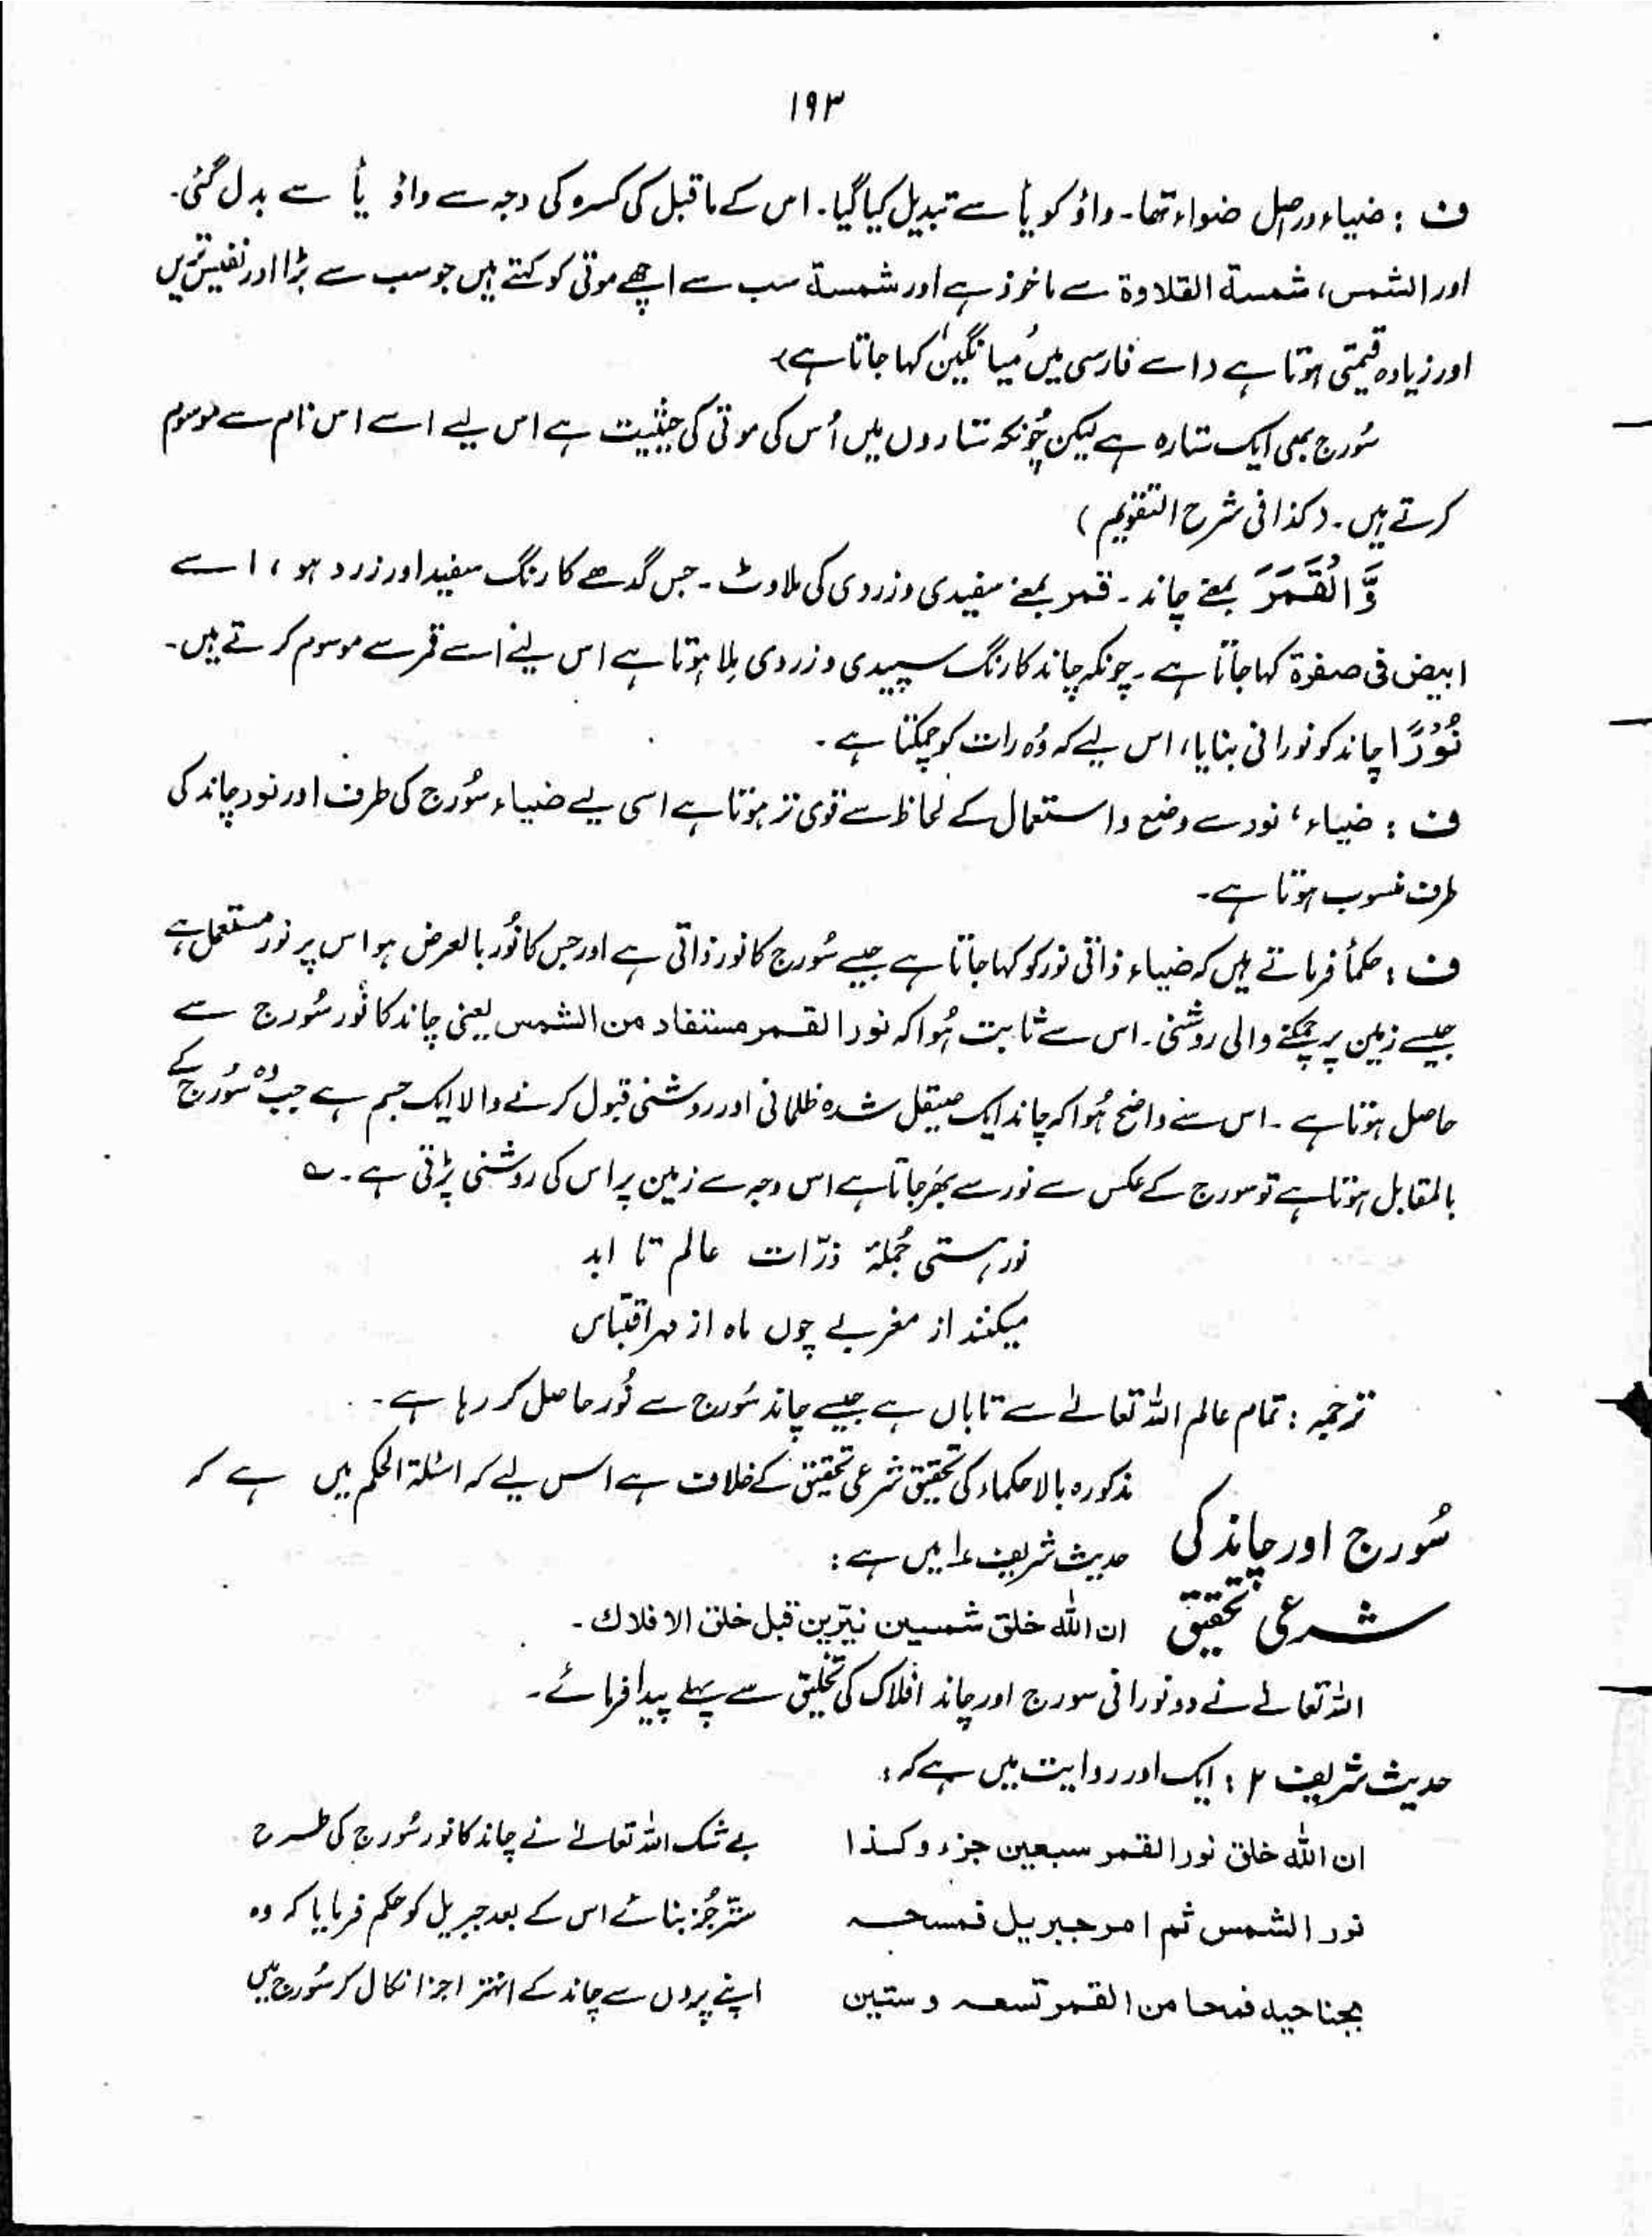 ۱۹۳
ف : ضیاء دراصل ضواء تھا۔ واؤ کو یأ سے تبدیل کیا گیا۔ اس کے ماقبل کی کسرہ کی وجہ سے واؤ یأ سے بدل گئی۔
اور الشمس، شمسة القلادة سے ماخوذ ہے اور شمسة سب سے اچھے موتی کو کہتے ہیں جو سب سے بڑا اور نفیس تریں
اور زیادہ قیمتی ہوتا ہے (اسے فارسی میں میانگین کہا جاتا ہے)
سُورج بھی ایک ستارہ ہے لیکن چُونکہ ستاروں میں اُس کی موتی کی حیثیت ہے اس لیے اسے اس نام سے موسوم
کرتے ہیں۔ (کذا فی شرح التقویم)
وَّ الْقَمَرَ بمعنے چاند۔ قمر بمعنے سفیدی و زردی کی ملاوٹ۔ جس گدھے کا رنگ سفید اور زرد ہو، اسے
ابیض فی صفرة کہا جاتا ہے۔ چونکہ چاند کا رنگ سپیدی و زردی مِلا ہوتا ہے اس لیے اسے قمر سے موسوم کرتے ہیں۔
نُوْرًا چاند کو نورانی بنایا، اس لیے کہ وُہ رات کو چمکتا ہے۔
ف : ضیاء، نور سے وضع و استعمال کے لحاظ سے قوی تر ہوتا ہے اسی لیے ضیاء سُورج کی طرف اور نور چاند کی
طرف منسوب ہوتا ہے۔
ف : حکمأ فرماتے ہیں کہ ضیاء ذاتی نور کو کہا جاتا ہے جیسے سُورج کا نور ذاتی ہے اور جس کا نُور بالعرض ہو اس پر نور مستعمل ہے
جیسے زمین پر چمکنے والی روشنی۔ اس سے ثابت ہُوا کہ نور القمر مستفاد من الشمس یعنی چاند کا نُور سُورج سے
حاصل ہوتا ہے۔ اس سے واضح ہُوا کہ چاند ایک صیقل شدہ ظلمانی اور روشنی قبول کرنے والا ایک جسم ہے جب وہ سُورج کے
بالمقابل ہوتا ہے تو سورج کے عکس سے نور سے بھر جاتا ہے اس وجہ سے زمین پر اس کی روشنی پڑتی ہے۔ ؎
نور ہستی جُملۂ ذرّات عالم تا ابد
میکنند از مغربے چوں ماہ از مہر اقتباس
ترجمہ : تمام عالم اللہ تعالےٰ سے تاباں ہے جیسے چاند سُورج سے نُور حاصل کر رہا ہے۔
مذکورہ بالا حکماء کی تحقیق شرعی تحقیق کے خلاف ہے اس لیے کہ اسئلة الحکم میں ہے کہ
سُورج اور چاند کی
حدیث شریف ۱ میں ہے :
شرعی تحقیق
ان اللّٰہ خلق شمسین نیّرین قبل خلق الافلاك۔
اللہ تعالےٰ نے دو نورانی سورج اور چاند افلاک کی تخلیق سے پہلے پیدا فرمائے۔
حدیث شریف ۲ : ایک اور روایت میں ہے کہ :
ان اللّٰہ خلق نور القمر سبعین جزء وکذا
نور الشمس ثم امر جبریل فمسحہ
بجناحیہ فمحا من القمر تسعہ وستین
بے شک اللہ تعالےٰ نے چاند کا نور سُورج کی طرح
ستّر جُز بنائے اس کے بعد جبریل کو حکم فرمایا کہ وہ
اپنے پروں سے چاند کے انہتر اجزا نکال کر سُورج میں